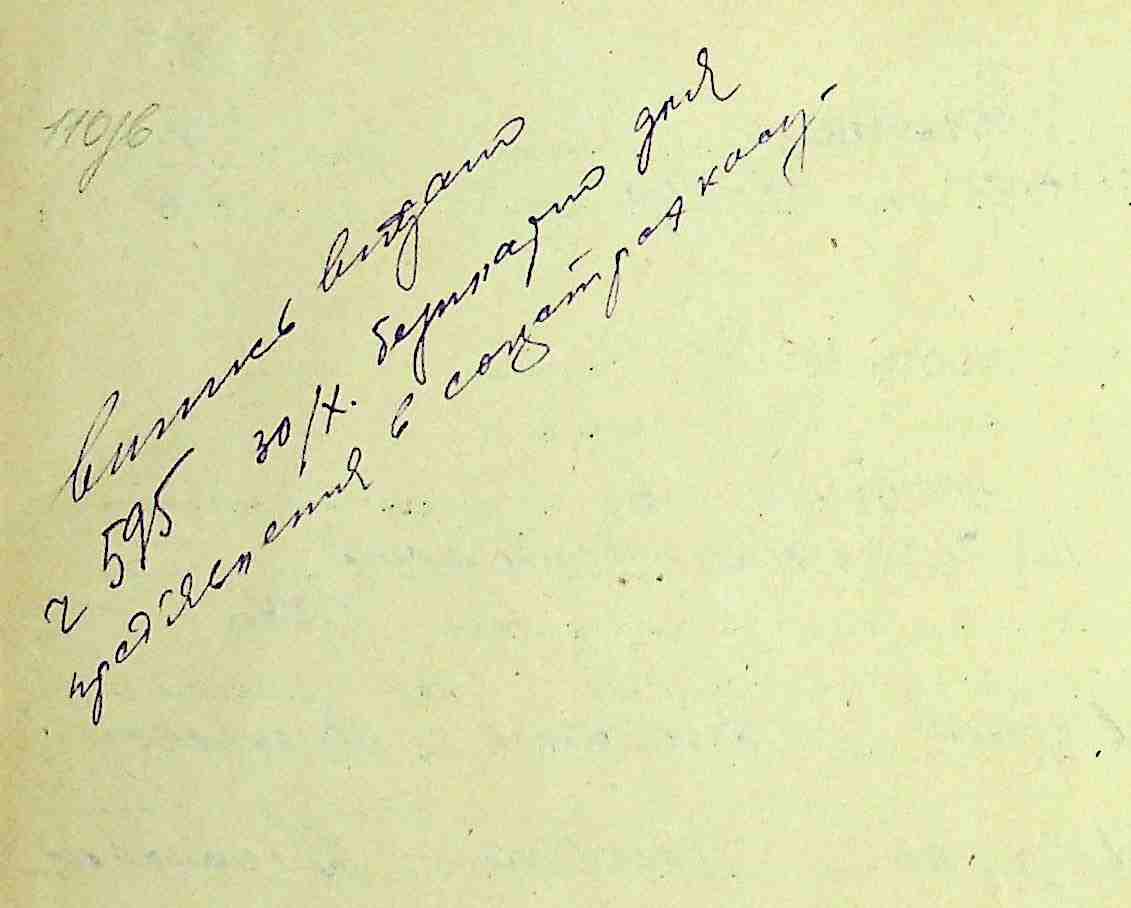 110зв
випись видано
ч 595 30/X. безплатно для
пред'явлення в соцстрахкасу.